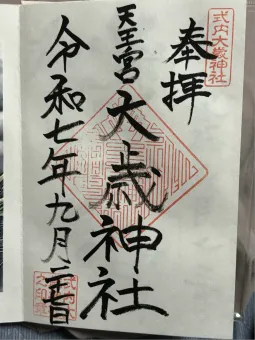 式内大歳神社
奉拝
天王宮大歳神社
令和七年九月二十三日